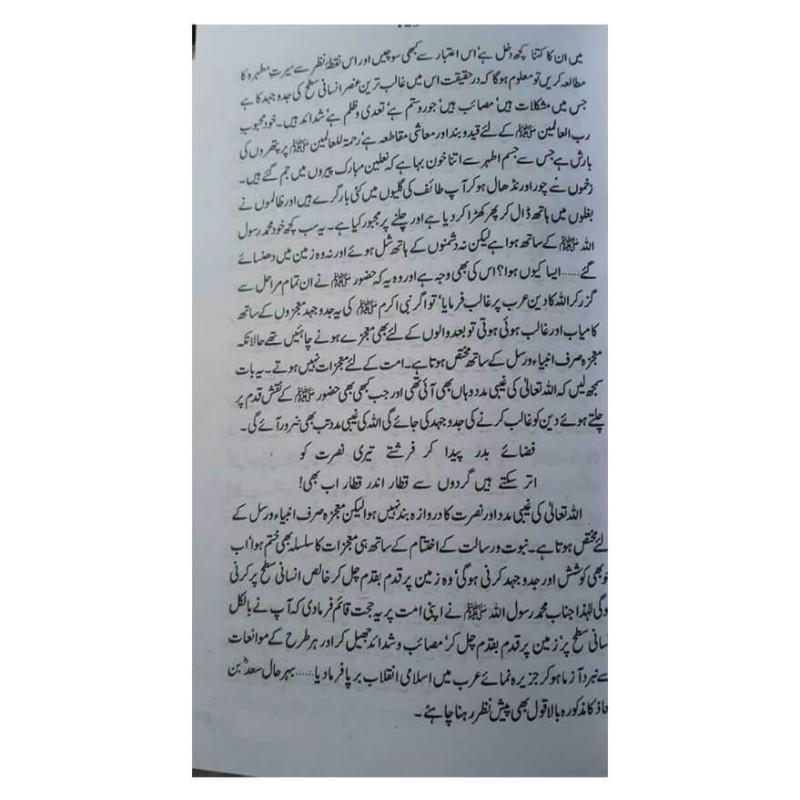 میں ان کا کتنا کچھ دخل ہے‘ اس اعتبار سے کبھی سوچیں اور اس نقطۂ نظر سے سیرتِ مطہرہ کا
مطالعہ کریں تو معلوم ہوگا کہ درحقیقت اس میں غالب ترین عنصر انسانی سطح کی جدوجہد کا ہے
جس میں مشکلات ہیں‘ مصائب ہیں‘ جوروستم ہے‘ تعدی و ظلم ہے‘ شدائد ہیں۔ خود محبوب
رب العالمین ﷺ کے لئے قید و بند اور معاشی مقاطعہ ہے‘ رحمۃ للعالمین ﷺ پر پتھروں کی
بارش ہے جس سے جسم اطہر سے اتنا خون بہا ہے کہ نعلین مبارک پیروں میں جم گئے ہیں۔
زخموں نے چور اور نڈھال ہو کر آپ طائف کی گلیوں میں کئی بار گرے ہیں اور ظالموں نے
بغلوں میں ہاتھ ڈال کر پھر کھڑا کر دیا ہے اور چلنے پر مجبور کیا ہے۔ یہ سب کچھ خود محمد رسول
اللہ ﷺ کے ساتھ ہوا ہے لیکن نہ دشمنوں کے ہاتھ شل ہوئے اور نہ وہ زمین میں دھنسائے
گئے...... ایسا کیوں ہوا؟ اس کی بھی وجہ ہے اور وہ یہ کہ حضور ﷺ نے ان تمام مراحل سے
گزر کر اللہ کا دین عرب پر غالب فرمایا‘ تو اگر نبی اکرم ﷺ کی یہ جدوجہد معجزوں کے ساتھ
کامیاب اور غالب ہوئی ہوتی تو بعد والوں کے لئے بھی معجزے ہونے چاہئیں تھے حالانکہ
معجزہ صرف انبیاء و رسل کے ساتھ مختص ہوتا ہے۔ امت کے لئے معجزات نہیں ہوتے۔ یہ بات
سمجھ لیں کہ اللہ تعالیٰ کی غیبی مدد وہاں بھی آئی تھی اور جب کبھی بھی حضور ﷺ کے نقش قدم پر
چلتے ہوئے دین کو غالب کرنے کی جدوجہد کی جائے گی اللہ کی غیبی مدد تب بھی ضرور آئے گی۔
فضائے بدر پیدا کر فرشتے تیری نصرت کو
اتر سکتے ہیں گردوں سے قطار اندر قطار اب بھی!
اللہ تعالیٰ کی غیبی مدد اور نصرت کا دروازہ بند نہیں ہوا لیکن معجزہ صرف انبیاء و رسل کے
لئے مختص ہوتا ہے۔ نبوت و رسالت کے اختتام کے ساتھ ہی معجزات کا سلسلہ بھی ختم ہوا‘ اب
جو بھی کوشش اور جدوجہد کرنی ہوگی‘ وہ زمین پر قدم بقدم چل کر خالص انسانی سطح پر کرنی
ہوگی لہٰذا جناب محمد رسول اللہ ﷺ نے اپنی امت پر یہ حجت قائم فرما دی کہ آپ نے بالکل
انسانی سطح پر‘ زمین پر قدم بقدم چل کر‘ مصائب و شدائد جھیل کر اور ہر طرح کے موانعات
سے نبرد آزما ہو کر جزیرہ نمائے عرب میں اسلامی انقلاب برپا فرما دیا...... بہرحال سعدؓ بن
معاذ کا مذکورہ بالا قول بھی پیش نظر رہنا چاہئے۔